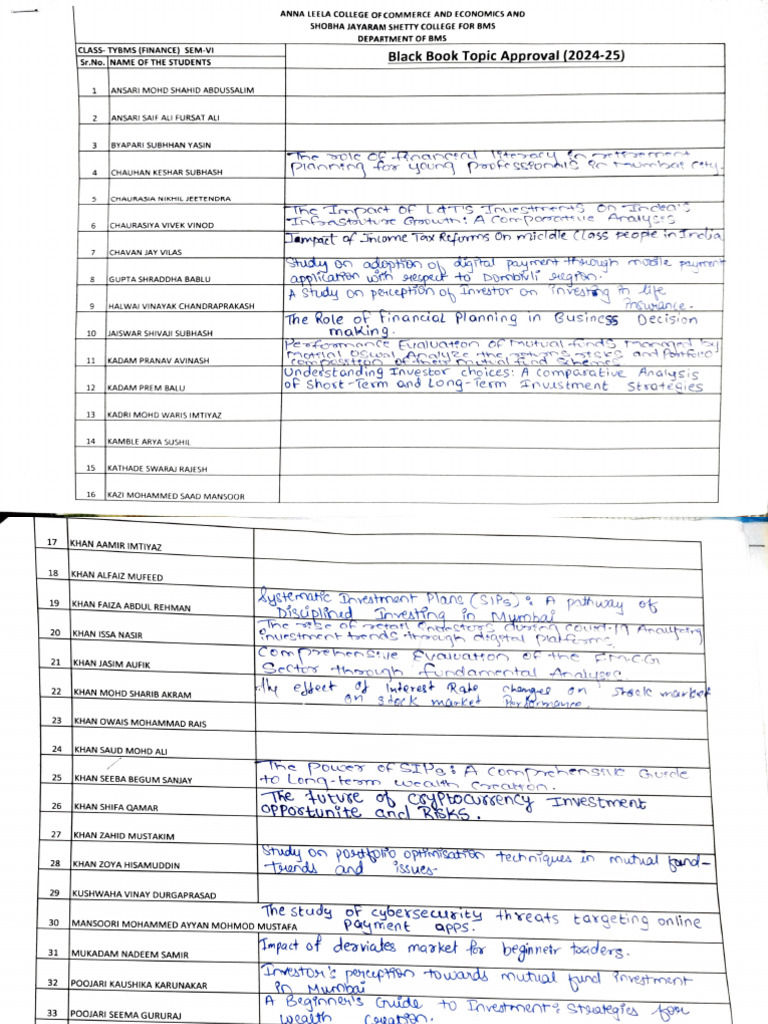 ANNA LEELA COLLEGE OF COMMERCE AND ECONOMICS AND
SHOBHA JAYARAM SHETTY COLLEGE FOR BMS
DEPARTMENT OF BMS
CLASS- TYBMS (FINANCE) SEM-VI
Black Book Topic Approval (2024-25)
Sr.No. NAME OF THE STUDENTS
1 ANSARI MOHD SHAHID ABDUSSALIM
2 ANSARI SAIF ALI FURSAT ALI
3 BYAPARI SUBHHAN YASIN
The role of financial literacy in retirement
planning for young professionals in Mumbai city.
4 CHAUHAN KESHAR SUBHASH
5 CHAURASIA NIKHIL JEETENDRA
The Impact of L&T'S Investments On India's
Infrastruture Growth: A Comparative Analysis
6 CHAURASIYA VIVEK VINOD
Iampact of Income Tax Reforms On middle Class people in India
7 CHAVAN JAY VILAS
Study on adoption of digital payment through mobile payment
application with respect to Dombivli region.
8 GUPTA SHRADDHA BABLU
A Study on perception of Investor on investing in life
insurance.
9 HALWAI VINAYAK CHANDRAPRAKASH
The Role of Financial Planning in Business Decision
making.
10 JAISWAR SHIVAJI SUBHASH
Performance Evaluation of Mutual funds Managed by
Motilal Oswal Analyze the returns risks and Portfolio
composition of their mutual fund Schemes
11 KADAM PRANAV AVINASH
Understanding Investor choices: A Comparative Analysis
of Short-Term and Long-Term Investment Strategies
12 KADAM PREM BALU
13 KADRI MOHD WARIS IMTIYAZ
14 KAMBLE ARYA SUSHIL
15 KATHADE SWARAJ RAJESH
16 KAZI MOHAMMED SAAD MANSOOR
17 KHAN AAMIR IMTIYAZ
18 KHAN ALFAIZ MUFEED
Systematic Investment Plans (SIPs): A pathway of
Disciplined Investing in Mumbai
19 KHAN FAIZA ABDUL REHMAN
The rise of retail investors during covid-19 Analyzing
investment trends through digital platforms
20 KHAN ISSA NASIR
Comprehensive Evaluation of the F.M.C.G
Sector through fundamental Analyses
21 KHAN JASIM AUFIK
The effect of Interest Rate changes on stock market
on stock market Performance.
22 KHAN MOHD SHARIB AKRAM
23 KHAN OWAIS MOHAMMAD RAIS
24 KHAN SAUD MOHD ALI
The Power of SIPs: A Comprehensive Guide
to Long-term wealth creation.
25 KHAN SEEBA BEGUM SANJAY
The future of cryptocurrency Investment
opportunite and Risks.
26 KHAN SHIFA QAMAR
27 KHAN ZAHID MUSTAKIM
Study on portfolio optimisation techniques in mutual fund-
trends and issues-
28 KHAN ZOYA HISAMUDDIN
29 KUSHWAHA VINAY DURGAPRASAD
The study of cybersecurity threats targeting online
payment apps.
30 MANSOORI MOHAMMED AYYAN MOHMOD MUSTAFA
Impact of derviates market for beginneir traders.
31 MUKADAM NADEEM SAMIR
Investor's perception towards mutual fund investment
in Mumbai
32 POOJARI KAUSHIKA KARUNAKAR
A Beginner's Guide to Investment: Strategies for
wealth creation.
33 POOJARI SEEMA GURURAJ